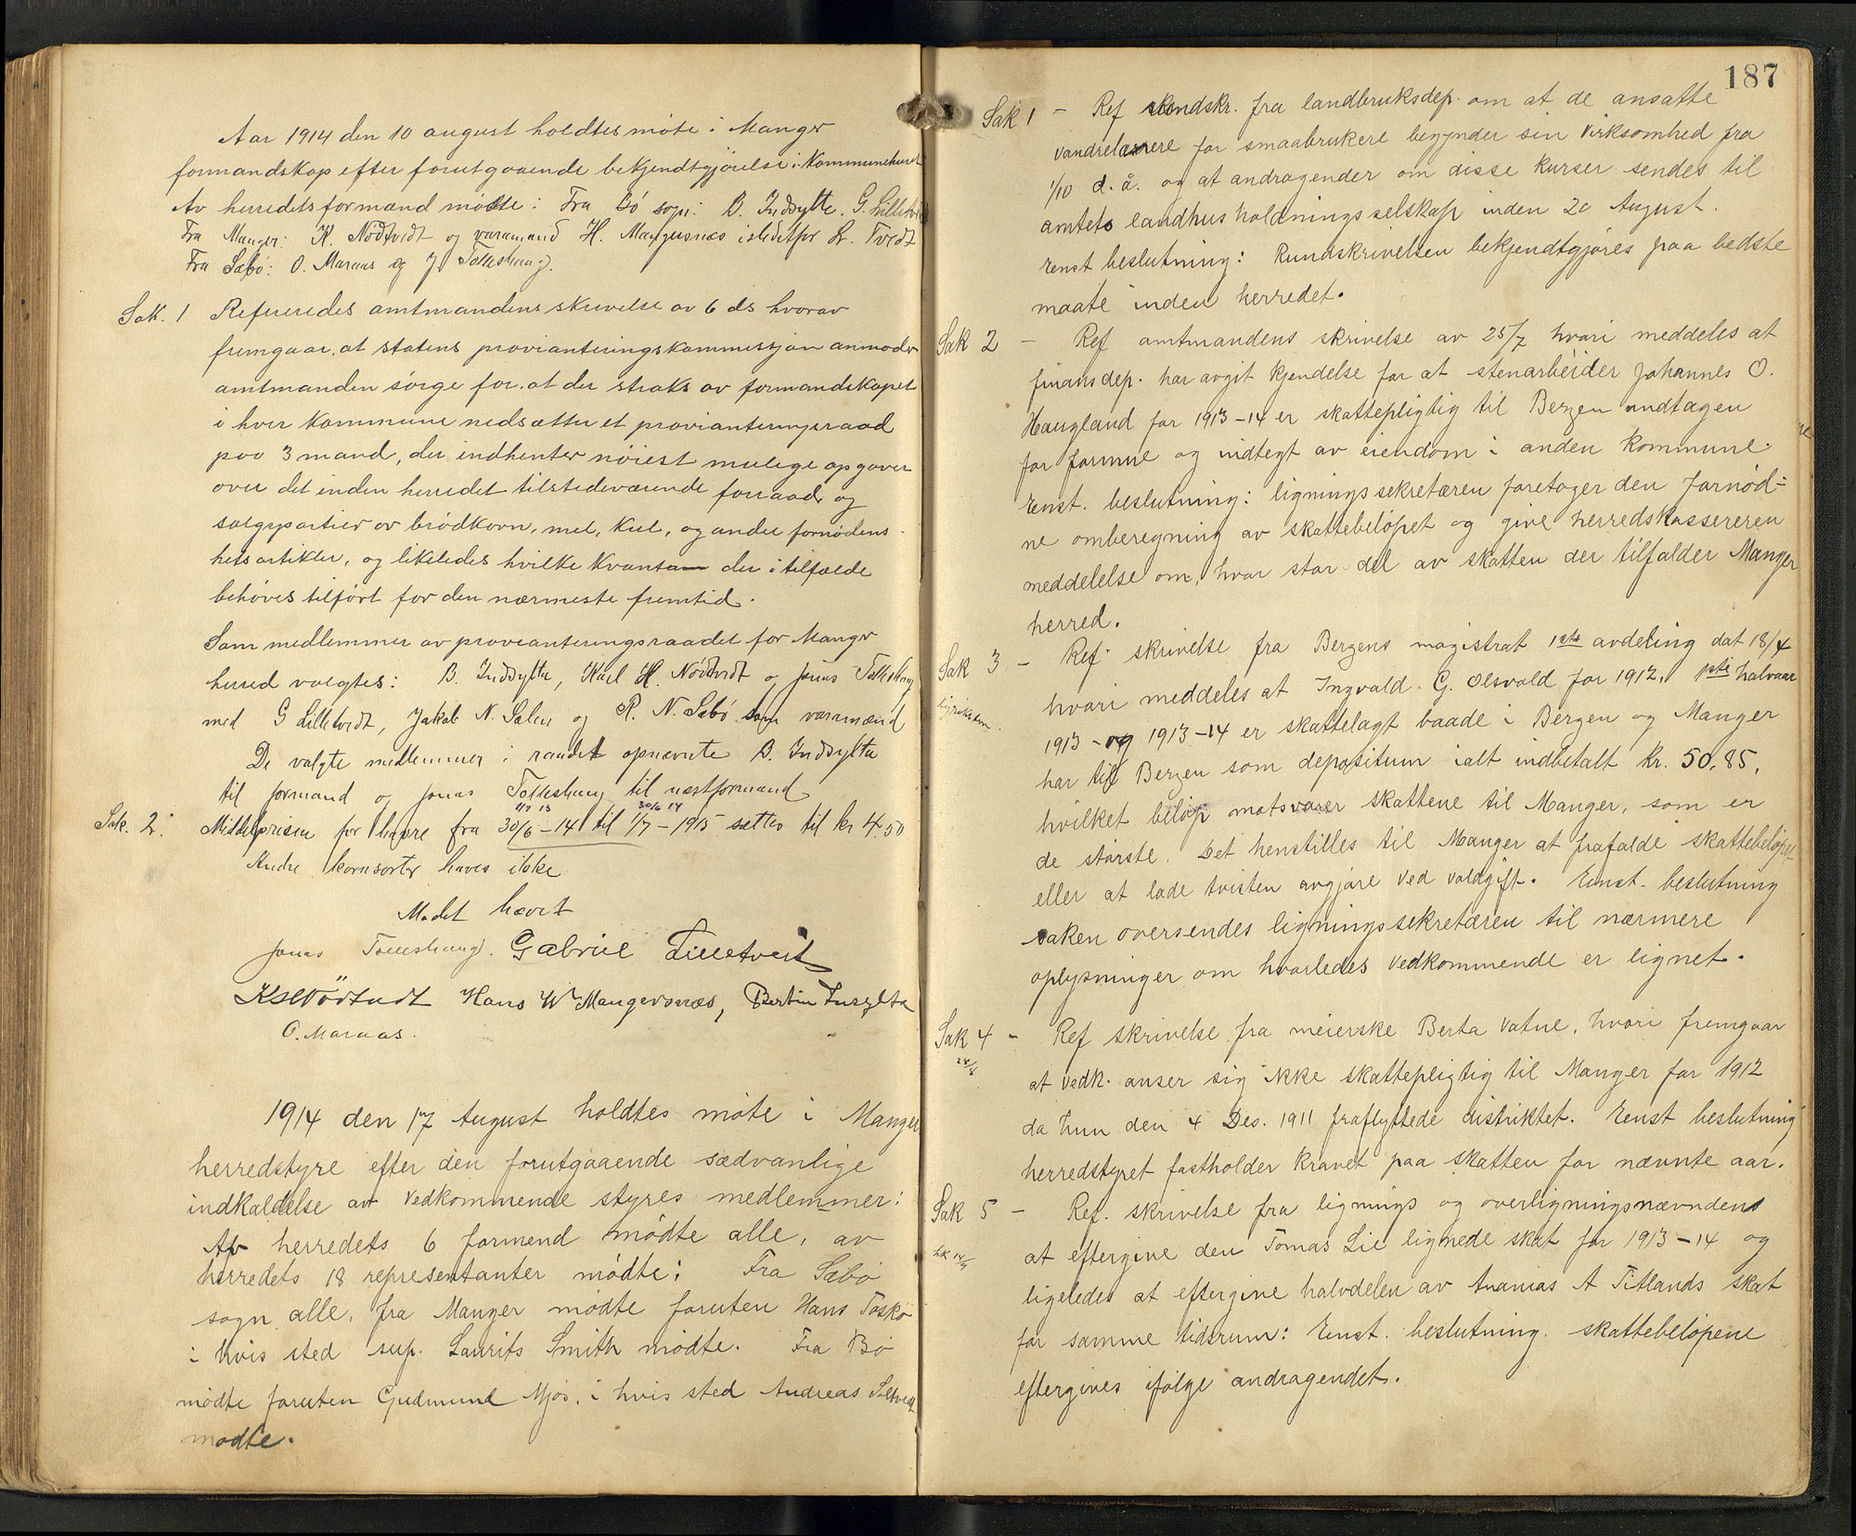 Aar 1914 den 10 august holdtes möte i Manger
formandskap efter forutgaaende bekjendtgjörelse i Kommunehuset
Av herredets formænd mödte: Fra Bö sogn: B. Indsylte. G. Lilletvedt
Fra Manger: K. Nödtvedt og varamand H. Mangersnes istedetfor Tvedt
Fra Sæbö: O. Maraas og J. Tolleshaug.
Sak. 1 Refereredes amtmandens skrivelse av 6 ds hvorav
fremgaar, at statens provianteringskommissjon anmoder
amtmanden sörge for at der straks av formandskapet
i hver kommune nedsættes et provianteringsraad
paa 3 mand, der indhenter nöiest mulige opgaver
over det inden herredet tilstedeværende forraad og
salgspartier av brödkorn, mel, kul, og andre fornödens-
hetsartikler, og likeledes hvilke kvanta der i tilfælde
behöves tilfört for den nærmeste fremtid.
Som medlemmer av provianteringsraadet for Manger
herred valgtes: B. Indsylta, Karl H. Nödtvedt og Jonas Tolleshaug
med G Lilletvedt, Jakob N. Salen og R. N. Sæbö som varamænd
De valgte medlemmer i raadet opnævnte B. Indsylta
til formand og Jonas Tolleshaug til næstformand
1/7 13 30/6 14
Sak. 2. Middelprisen for havre fra 30/6-14 til 1/7-1915 settes til kr 4.50
Andre kornsorter haves ikke
Mödet hævet
Jonas Tolleshaug. Gabriel Lilletvedt
K H Nödtvedt Hans W Mangersnæs, Bertin Insylta
O. Maraas.
1914 den 17 August holdtes möte i Manger
herredstyre efter den forutgaaende sædvanlige
indkaldelse av vedkommende styres medlemmer:
Av herredets 6 formend mödte alle, av
herredets 18 representanter mödte: Fra Sæbö
sogn alle, fra Manger mödte foruten Hans Toskö
i hvis sted sup. Laurits Smith mödte. Fra Bö
mödte foruten Gudmund Mjös, i hvis sted Andreas
mödte.
187
Sak 1 - Ref rundskr. fra landbruksdep. om at de ansatte
vandrelærere for smaabrukere begynder sin virksomhed fra
1/10 d. å. og at andragender om disse kurser sendes til
amtets landhusholdningsselskap inden 20 August.
Enst beslutning: Rundskrivelsen bekjendtgjöres paa bedste
maate inden herredet.
Sak 2 - Ref amtmandens skrivelse av 25/7 hvori meddeles at
finansdep. har avgit kjendelse for at stenarbeider Johannes O.
Haugland for 1913-14 er skattepligtig til Bergen undtagen
for formue og indtegt av eiendom i anden kommune.
Enst. beslutning: ligningssekretæren foretager den fornöd-
ne omberegning av skattebelöpet og give herredskassereren
meddelelse om, hvor stor del av skatten der tilfalder Manger
herred.
Sak 3 - Ref skrivelse fra Bergens magistrat 1ste avdeling dat 18/4
hvori meddeles at Ingvald G. Olsvold for 1912, 1ste halvaar
1913 - og 1913-14 er skattelagt baade i Bergen og Manger
har til Bergen som depositum ialt indbetalt kr. 50,85,
hvilket belöp motsvarer skattene til Manger, som er
de störste. Det henstilles til Manger at frafalde skattebelöpet
eller at lade tvisten avgjöre ved voldgift. Enst. beslutning
saken oversendes ligningssekretæren til nærmere
oplysninger om hvorledes vedkommende er lignet.
Sak 4 - Ref skrivelse fra meierske Berta Vatne, hvori fremgaar
28/8
at vedk. anser sig ikke skattepligtig til Manger for 1912
da hun den 4 Des. 1911 fraflyttede distriktet. Enst beslutning
herredstyret fastholder kravet paa skatten for nævnte aar.
Sak 5 - Ref. skrivelse fra lignings og overligningsnævnden
at eftergive den Tomas Lie lignede skat for 1913-14 og
ligeledes at eftergive halvdelen av Ananias A Titlands skat
for samme tidsrum: Enst. beslutning. skattebelöpene
eftergives ifölge andragendet.